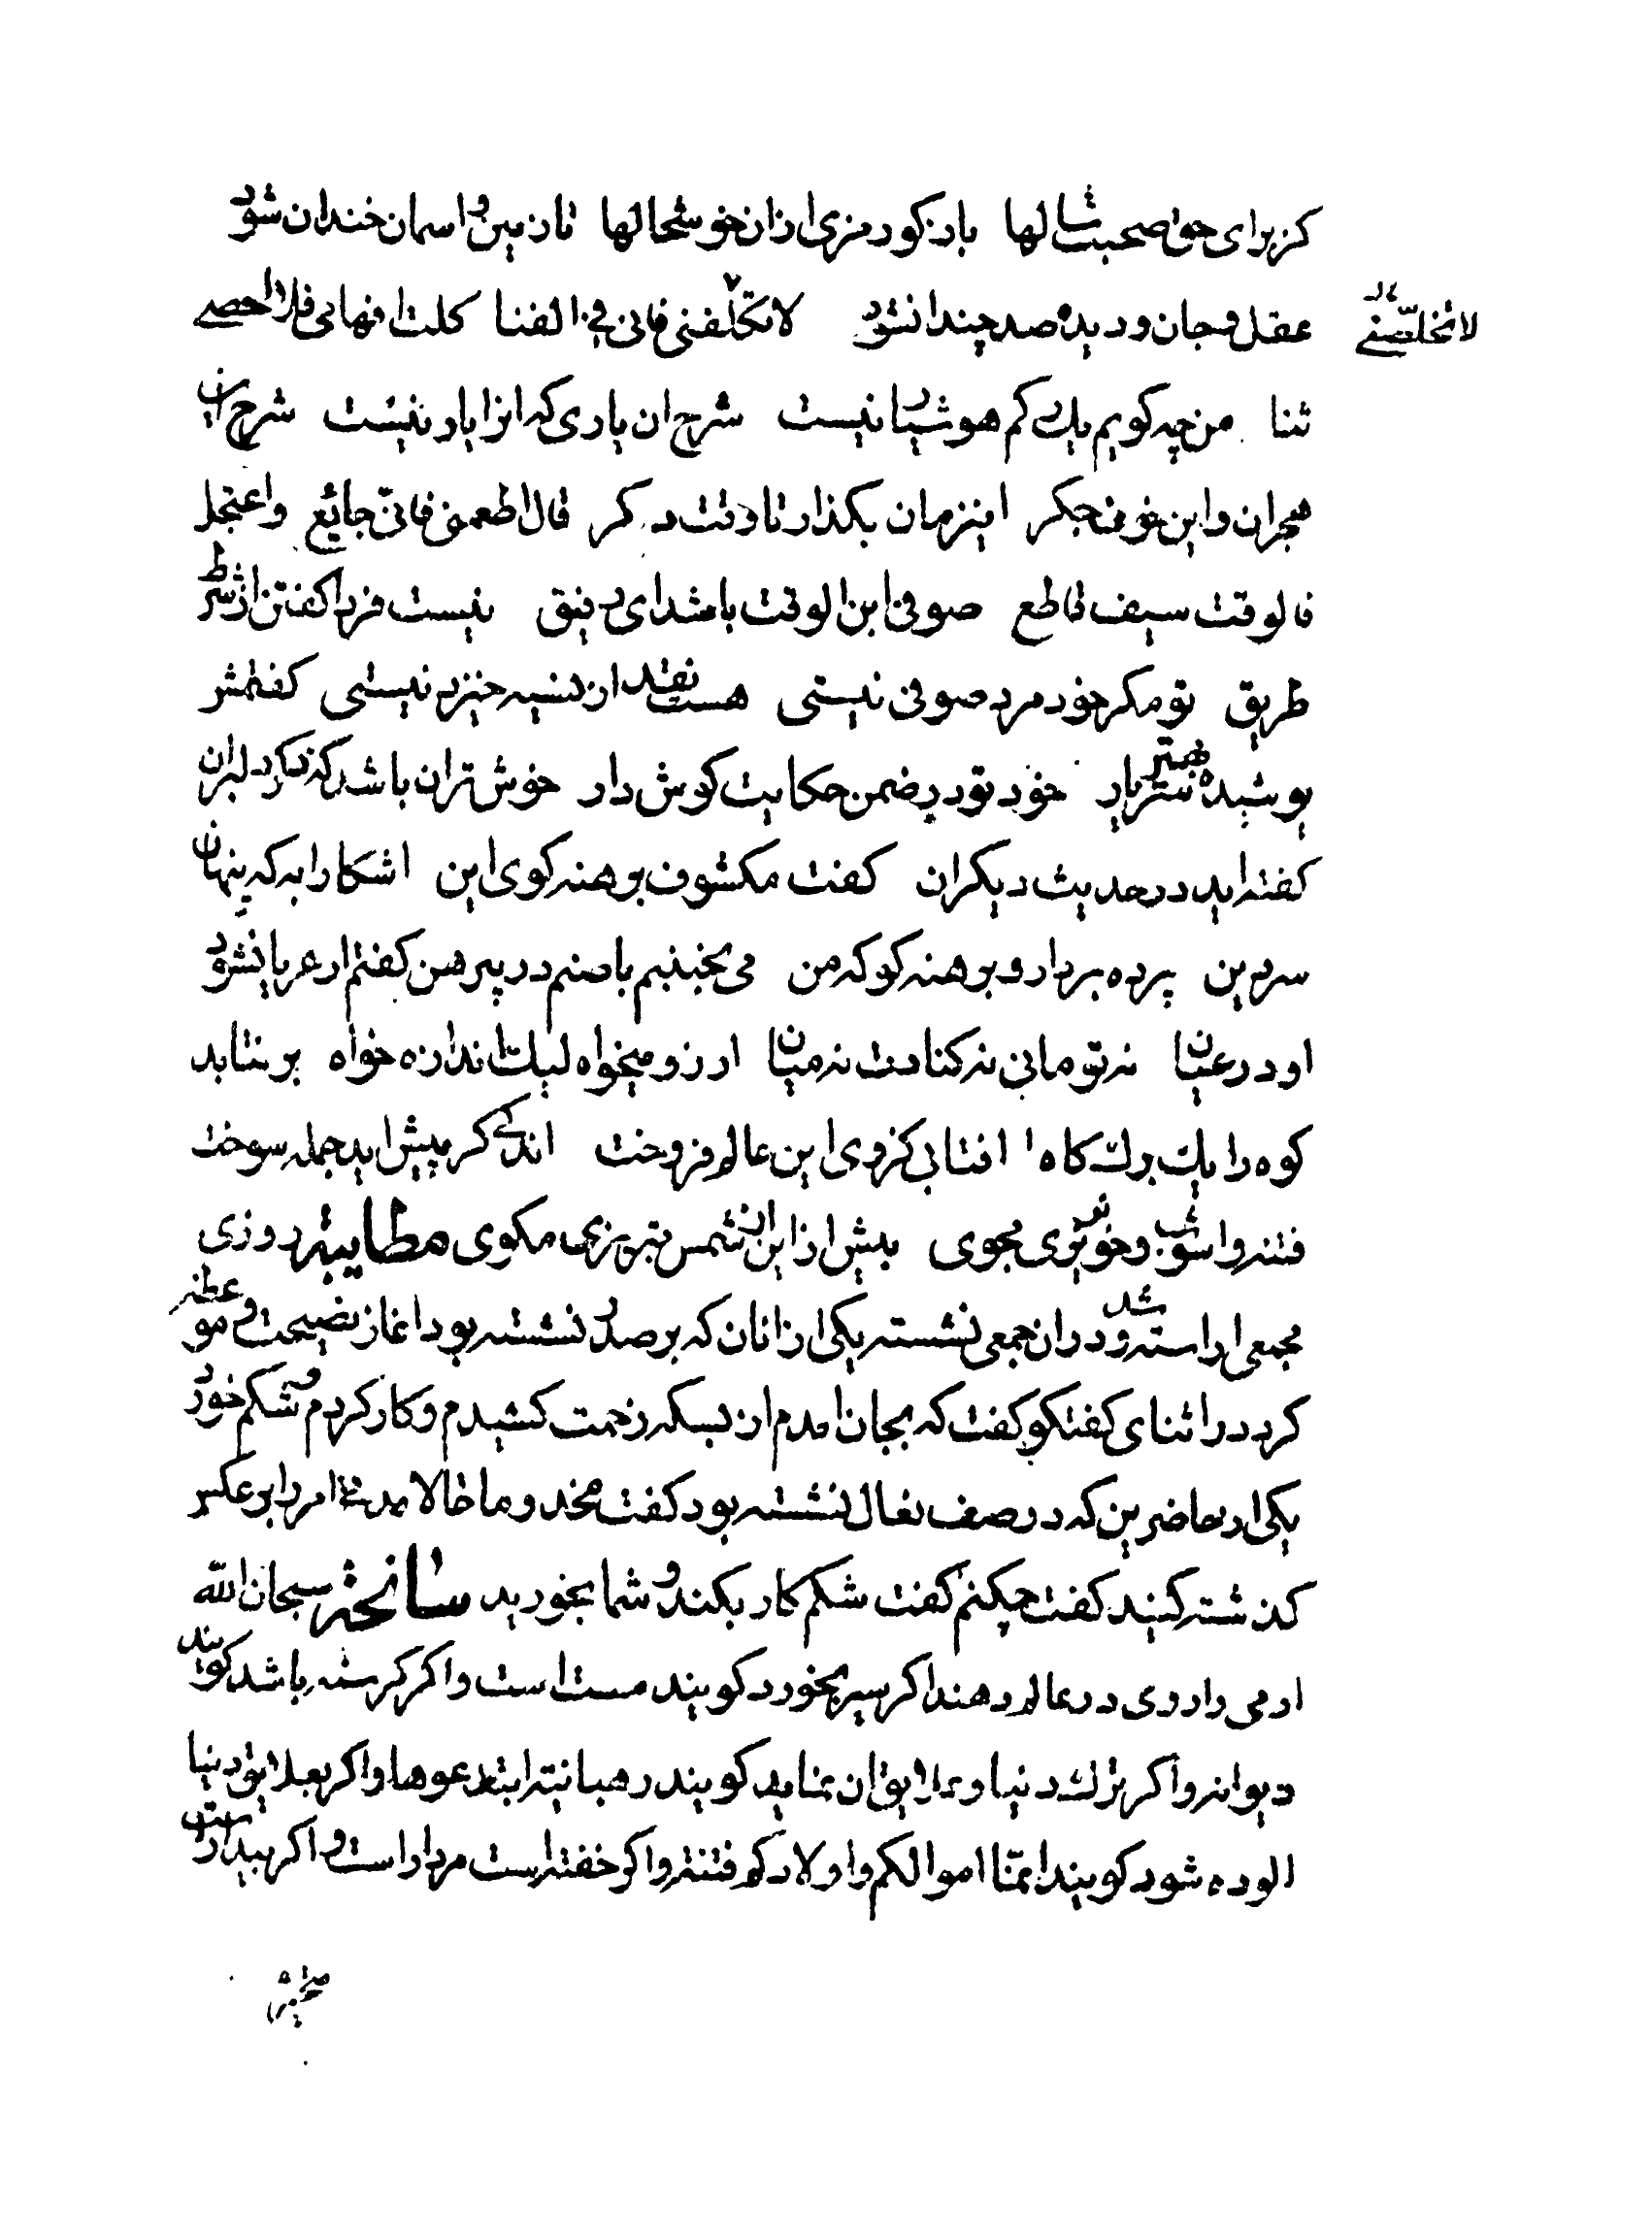 کز برای حق صحبت سالها باز کو رمزی ازان خوشحالها تا زمین و اسمان خندان شود
عقل و جان و دیده صد چندان شود لا تکلفنی فانی فی الفنا کلت افهامی فلا احصی
لا تخلصنی
ثنا من چه کویم یک رکم هوشیار نیست شرح ان یاری که انرا یار نیست شرح این
هجران و این خون جکر این زمان بکذار تا وقت دکر قال اطعمنی فانی جائع واعتجل
فالوقت سیف قاطع صوفی ابن الوقت باشد ای رفیق نیست فردا کفتن از شرط
طریق تو مکر خود مرد صوفی نیستی هست نقد از نسیه خیزد نیستی کفتمش
پوشیده بهتر سر یار خود تو در ضمن حکایت کوش دار خوش تران باشد که ذکر دلبران
کفته اید در حدیث دیکران کفت مکشوف برهنه کوی این اشکارا به که پنهان
سر دین پرده بردار و برهنه کو که من می نخبنیم با صنم در پیرهن کفتم ار عریان شود
او در عیان نه تو مانی نه کنارت نه میان ارزو میخواه لیک اندازه خواه بر نتابد
کوه را یک برک کاه افتابی کزوی این عالم فروخت اندکی کر پیش اید جمله سوخت
فتنه و اشوب و خونریزی مجوی بیش ازاین از شمس تبریزی مکوی مطایبه روزی
مجمعی اراسته شد و دران جمعی نشسته یکی ازانان که بر صدر نشسته بود اغاز نصیحت و موعظه
کرد در اثنای کفتکو کفت که بجان امدم از بسکه زحمت کشیدم و کار کردم و شکم خورد
یکی از حاضرین که در صف نعال نشسته بود کفت مخدوما حالا مدتی امر را بر عکس
کذشته کنید کفت چکنم کفت شکم کار بکند و شما بخورید سانحه سبحان الله
ادمی را روی در عالم دهند اکر سیر بخورد کویند مست است و اکر کرسنه باشد کویند
دیوانه و اکر ترک دنیا و علایق ان نماید کویند رهبانیة ابتدعوها و اکر بعلایق دنیا
الوده شود کویند انما اموالکم و اولادکم فتنة و اکر خفته است مردار است و اکر بیدار است